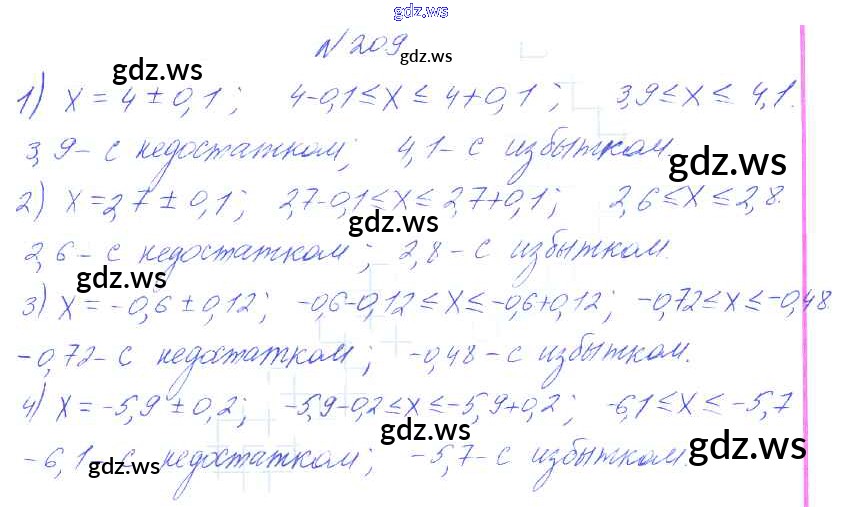 gdz.ws
N 209
gdz.ws gdz.ws
1) x = 4 ± 0,1; 4-0,1 ≤ x ≤ 4+0,1; 3,9 ≤ x ≤ 4,1.
3,9 - с недостатком; 4,1 - с избытком.
gdz.ws
2) x = 2,7 ± 0,1; 2,7-0,1 ≤ x ≤ 2,7+0,1; 2,6 ≤ x ≤ 2,8.
gdz.ws
2,6 - с недостатком; 2,8 - с избытком.
gdz.ws
3) x = -0,6 ± 0,12; -0,6-0,12 ≤ x ≤ -0,6+0,12; -0,72 ≤ x ≤ -0,48.
-0,72 - с недостатком; -0,48 - с избытком.
4) x = -5,9 ± 0,2; -5,9-0,2 ≤ x ≤ -5,9+0,2; -6,1 ≤ x ≤ -5,7
gdz.ws gdz.ws
-6,1 - с недостатком; -5,7 - с избытком.
gdz.ws